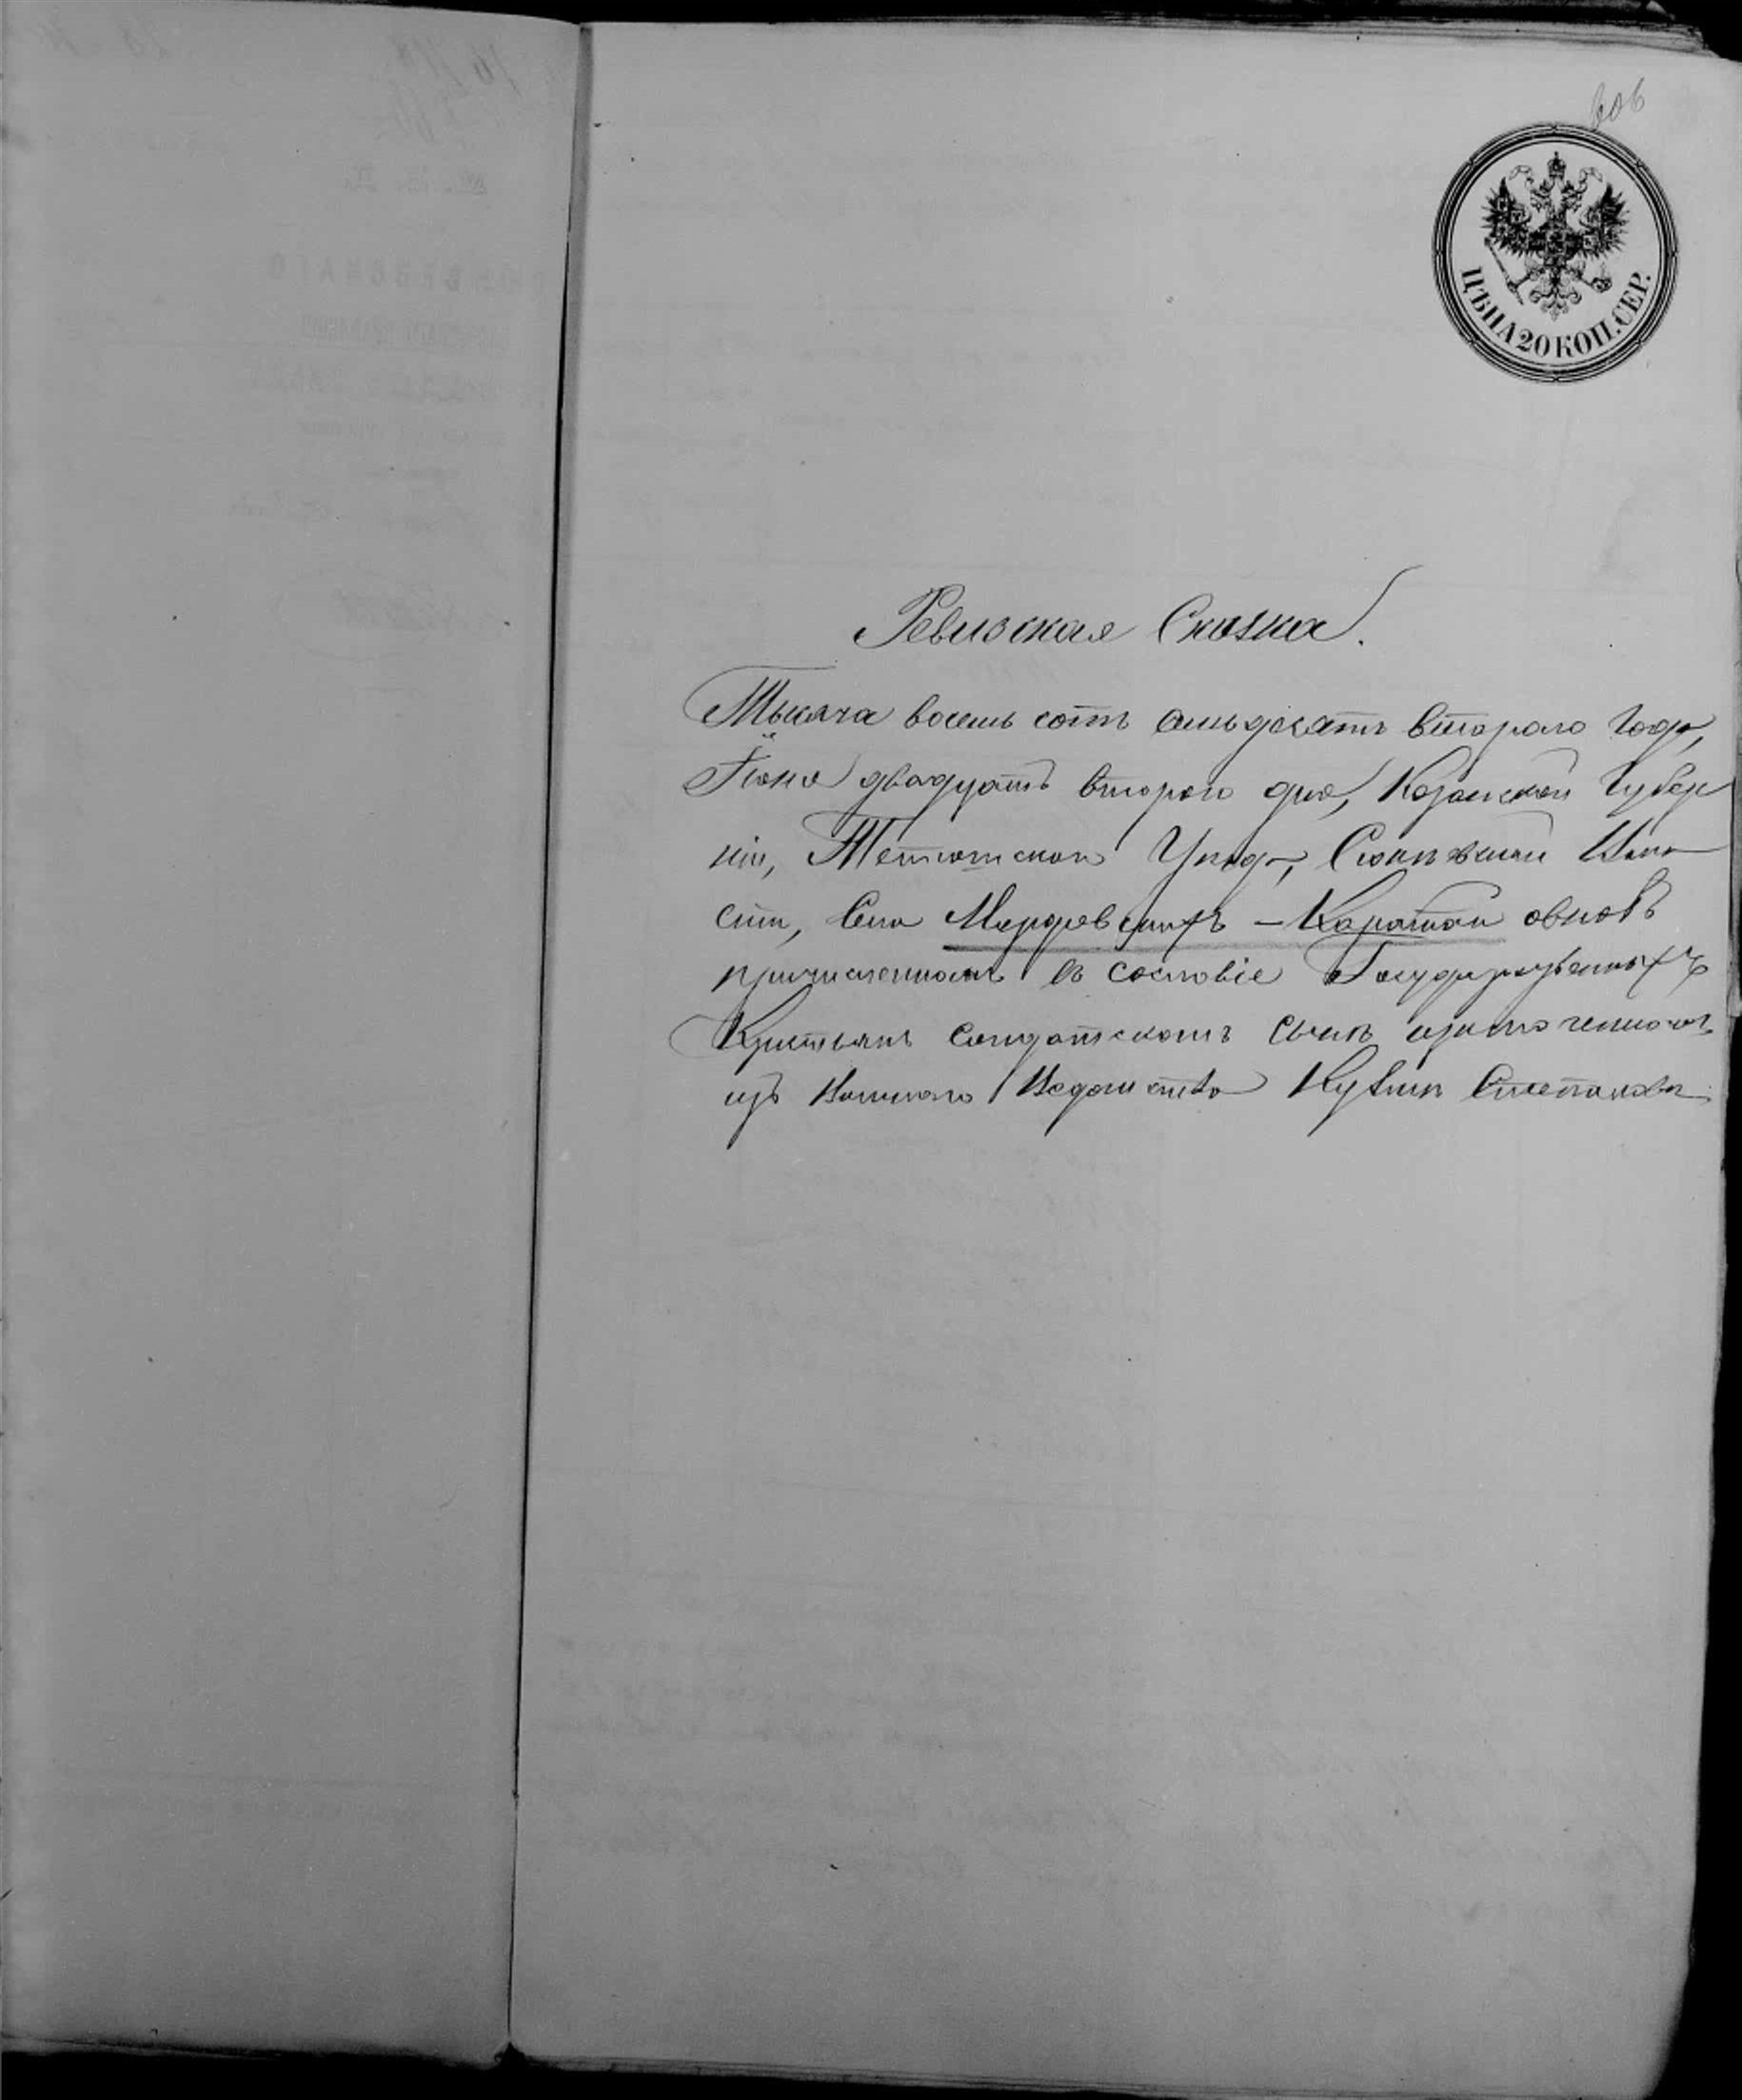 606
ЦѢНА 20 КОП. СЕР.
Ревизская Сказка.
Тысяча восемь сотъ семьдесятъ втораго года,
Іюня двадцать втораго дня, Казанской Губер
ніи, Тетюшскаго Уѣзда, Сюкѣевской Воло
сти, Села Мордовскихъ - Каратай о вновь
причисленномъ въ сословіе Государственныхъ
Крестьянъ Солдатскомъ сынѣ исключенномъ
изъ Военнаго Ведомства Степановѣ.